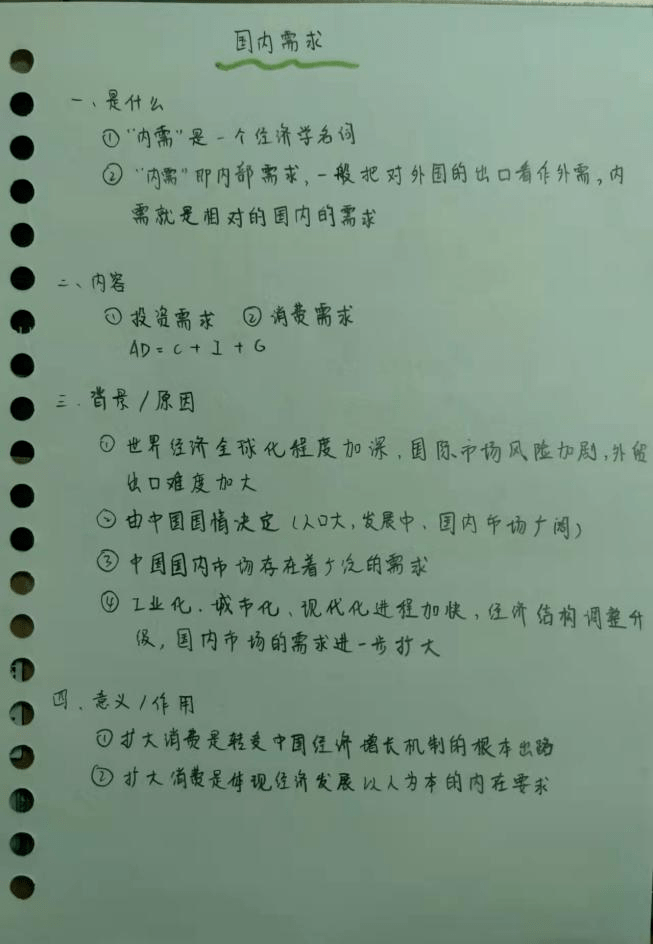 国内需求
一、是什么
①“内需”是一个经济学名词
②“内需”即内部需求,一般把对外国的出口看作外需,内
需就是相对的国内的需求
二、内容
①投资需求 ②消费需求
AD=C+I+G
三.背景/原因
①世界经济全球化程度加深,国际市场风险加剧,外贸
出口难度加大
②由中国国情决定(人口大,发展中、国内市场广阔)
③中国国内市场存在着广泛的需求
④工业化、城市化、现代化进程加快,经济结构调整升
级,国内市场的需求进一步扩大
四、意义/作用
①扩大消费是转变中国经济增长机制的根本出路
②扩大消费是体现经济发展以人为本的内在要求